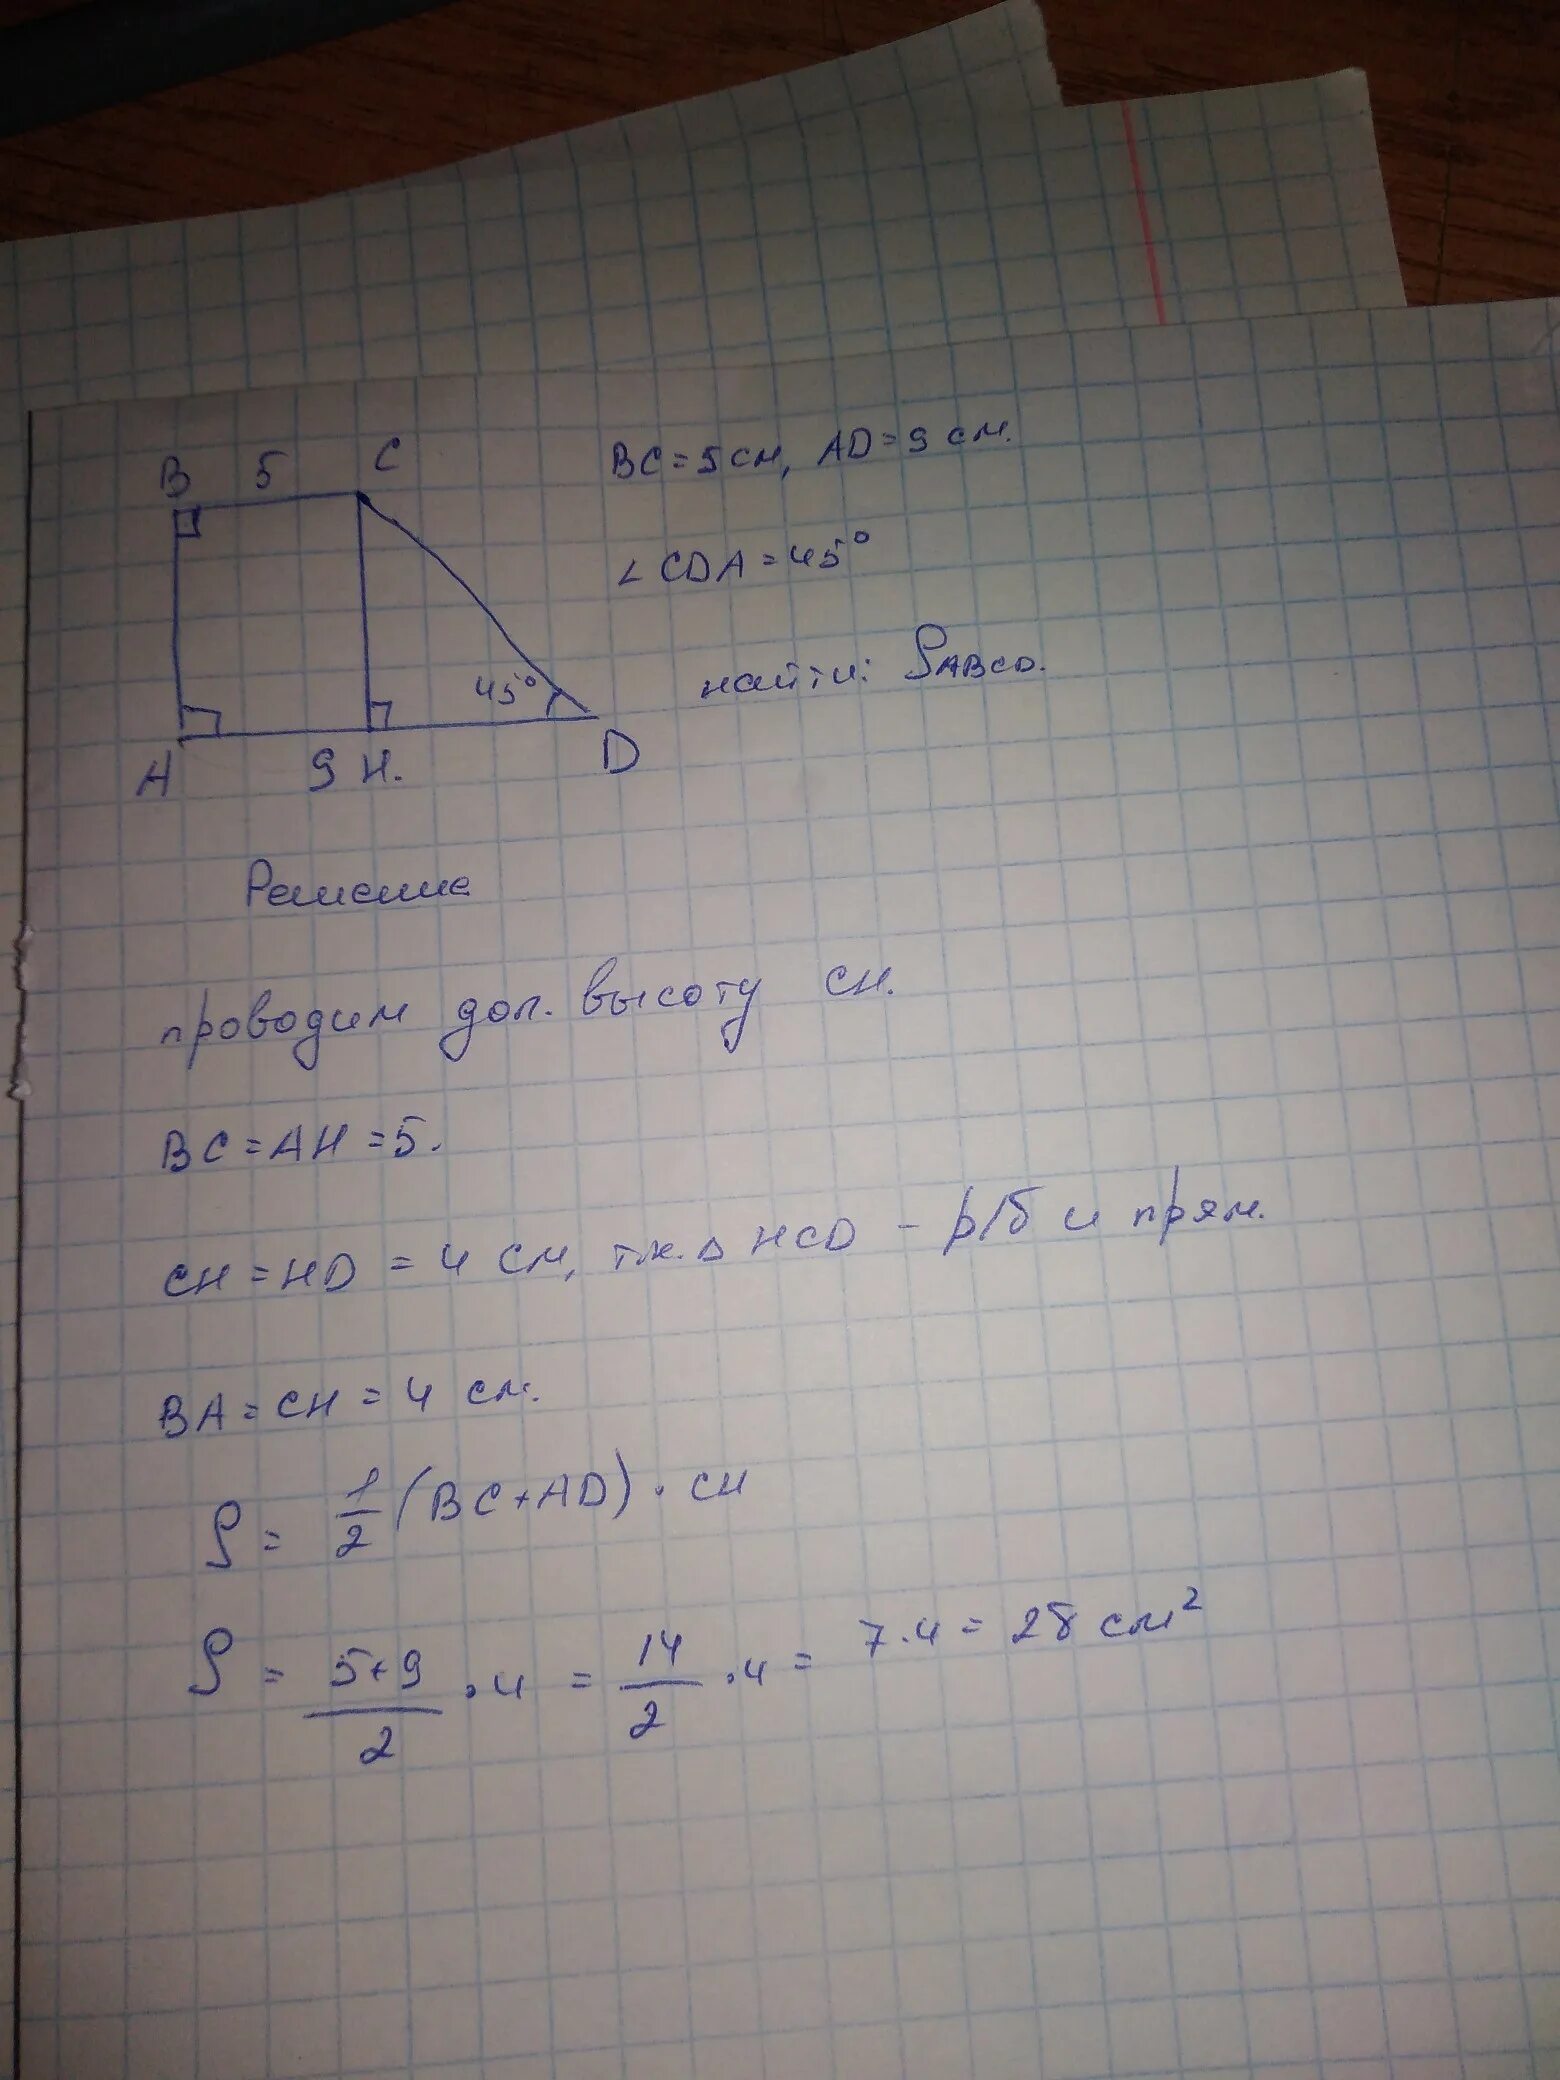 B 5 C
BC = 5 см, AD = 9 см.
∠CDA = 45°
45°
найти: SABCD.
A 9 H. D
Решение
проводим доп. высоту CH.
BC = AH = 5.
CH = HD = 4 см, т.к. △ HCD – р/б и прям.
BA = CH = 4 см.
S = 1/2 (BC + AD) · CH
S = 5+9/2 · 4 = 14/2 · 4 = 7 · 4 = 28 см²